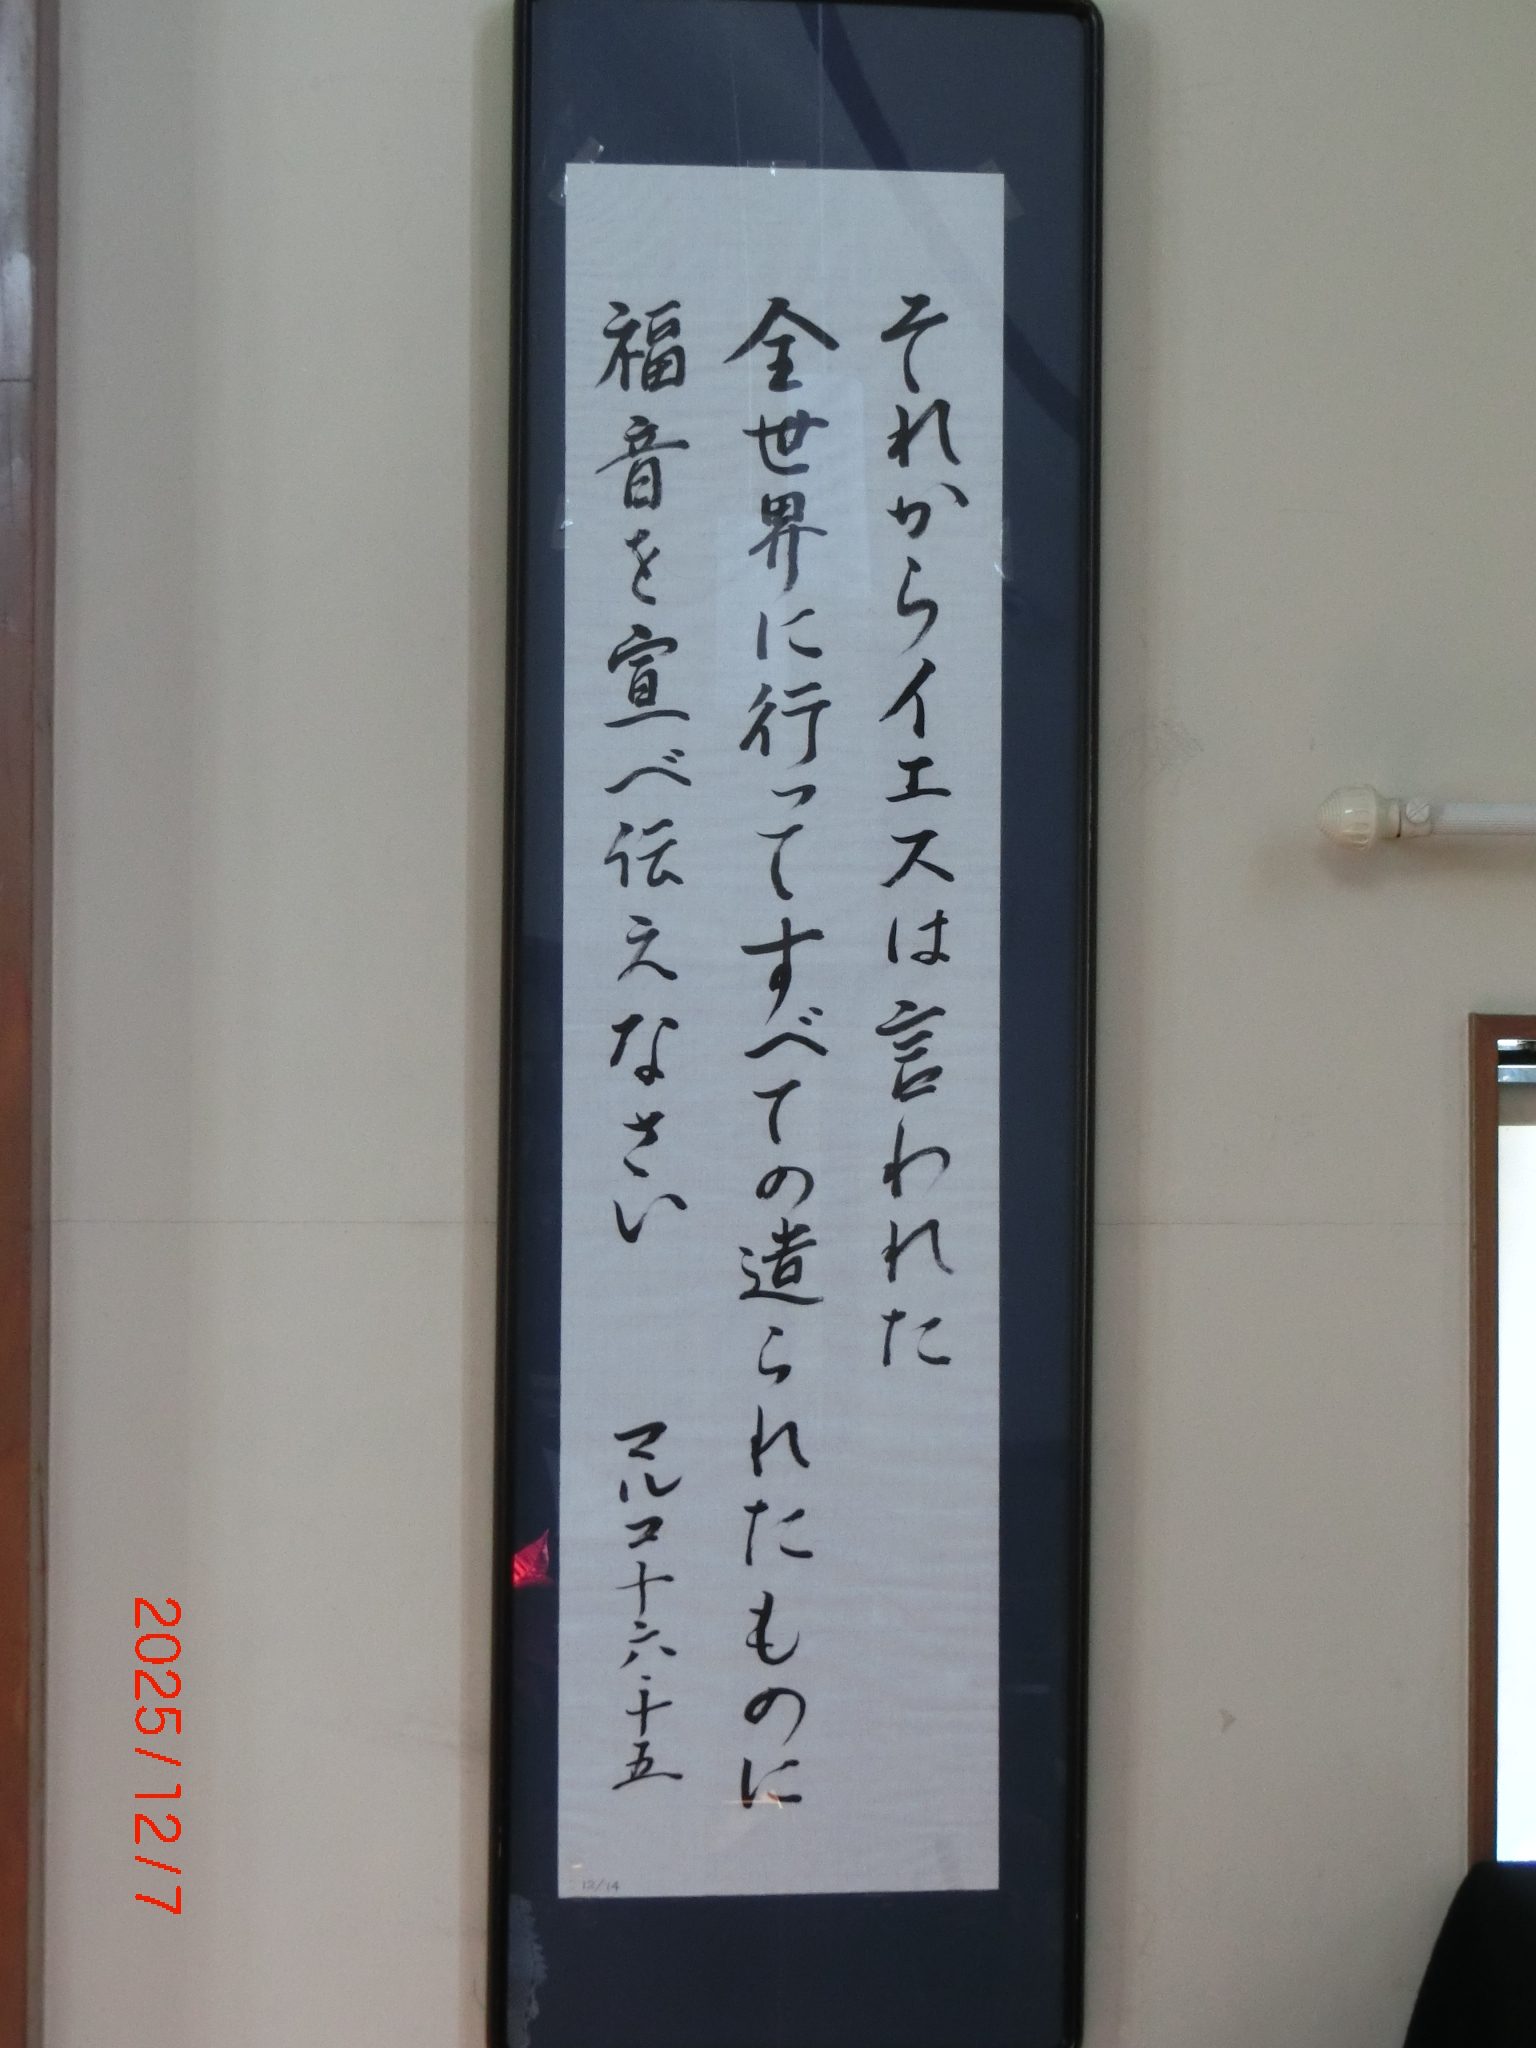 それからイエスは言われた
全世界に行ってすべての造られたものに
福音を宣べ伝えなさい マルコ十六・十五
12/14
2025/12/7